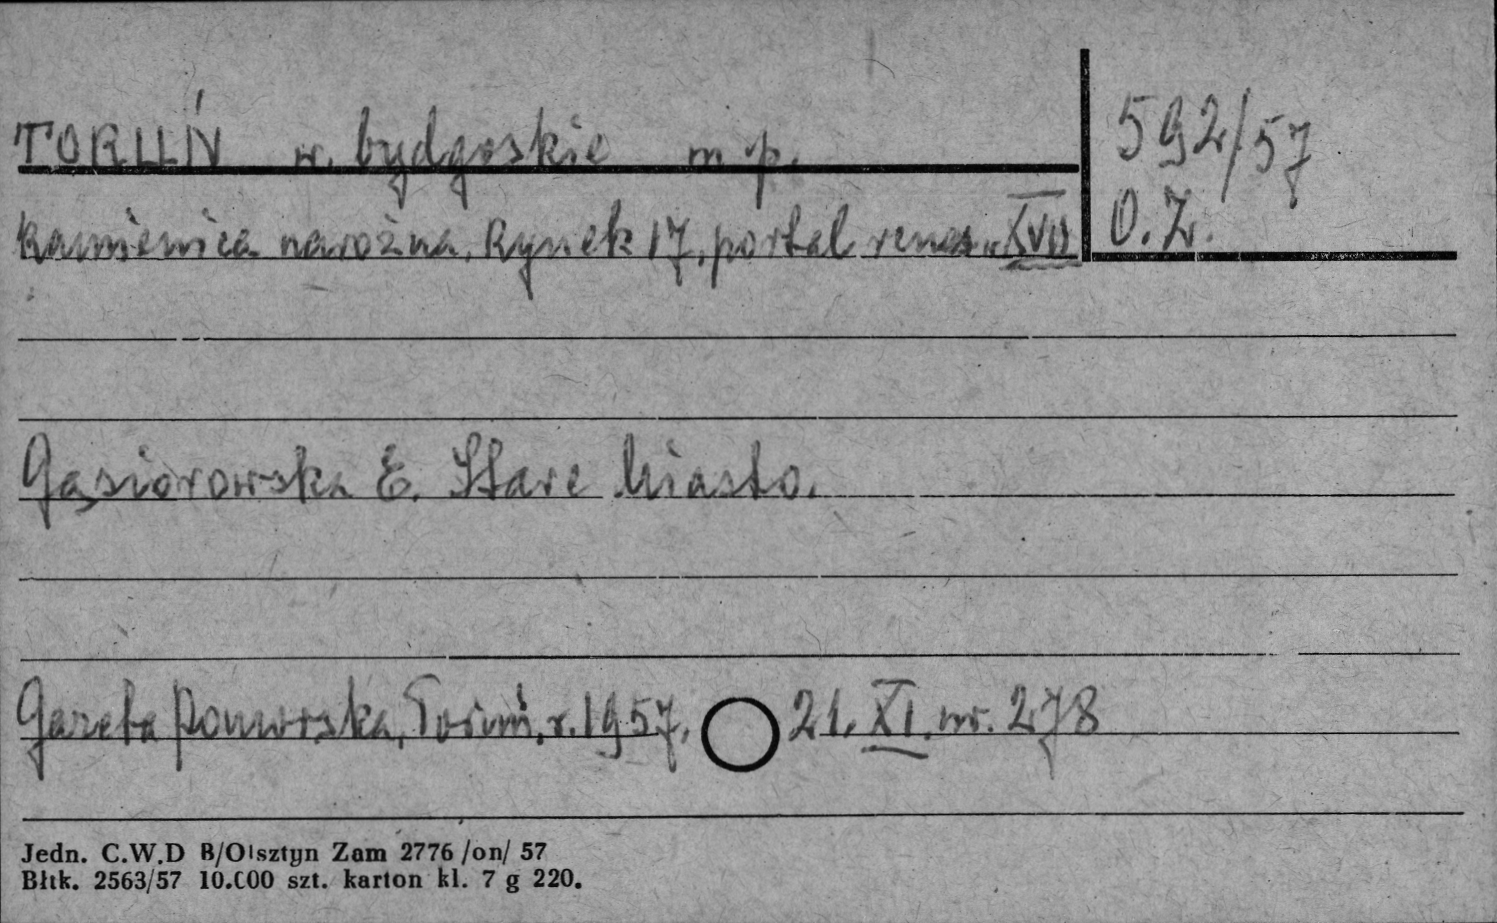 TORUŃ w. bydgoskie m p.
592/57
Kamienica narożna, Rynek 17, portal renes. XVII
O.Z.
Gąsiorowska E. Stare Miasto.
Gazeta Pomorska, Toruń, r. 1957, 21. XI. nr. 278
Jedn. C.W.D B/Olsztyn Zam 2776 /on/ 57
Błtk. 2563/57 10.000 szt. karton kl. 7 g 220.